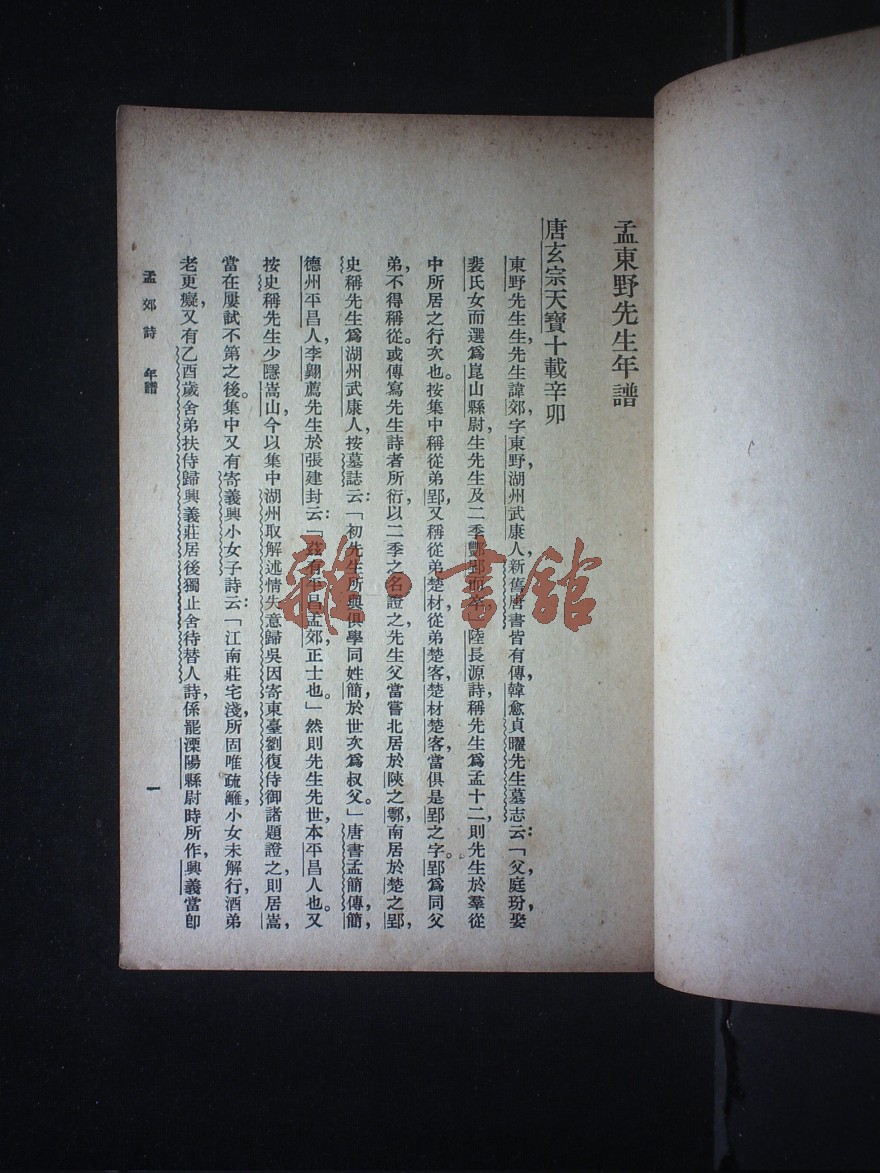 孟東野先生年譜
唐玄宗天寶十載辛卯
東野先生生，先生諱郊，字東野，湖州武康人，新舊唐書皆有傳，韓愈貞曜先生墓志云：「父庭玢，娶
裴氏女，而選爲崑山縣尉，生先生及二季酆郢而卒。」陸長源詩，稱先生爲孟十二，則先生於羣從
中所居之行次也。按集中稱從弟郢，又稱從弟楚材，從弟楚客，楚材楚客，當俱是郢之字。郢爲同父
弟，不得稱從。或傳寫先生詩者所衍，以二季之名證之，先生父當嘗北居於陝之鄠，南居於楚之郢，
史稱先生爲湖州武康人，按墓誌云：「初先生所與俱學同姓簡，於世次爲叔父。」唐書孟簡傳，簡，
德州平昌人，李翺薦先生於張建封云：「茲有平昌孟郊，正士也。」然則先生先世，本平昌人也。又
按史稱先生少隱嵩山，今以集中湖州取解述情失意歸吳因寄東臺劉復侍御諸題證之，則居嵩，
當在屢試不第之後。集中又有寄義興小女子詩云：「江南莊宅淺，所固唯疏籬，小女未解行，酒弟
老更癡，又有乙酉歲舍弟扶侍歸興義莊居後獨止舍待替人詩，係罷溧陽縣尉時所作，興義當卽
孟郊詩 年譜
一
雜·書館